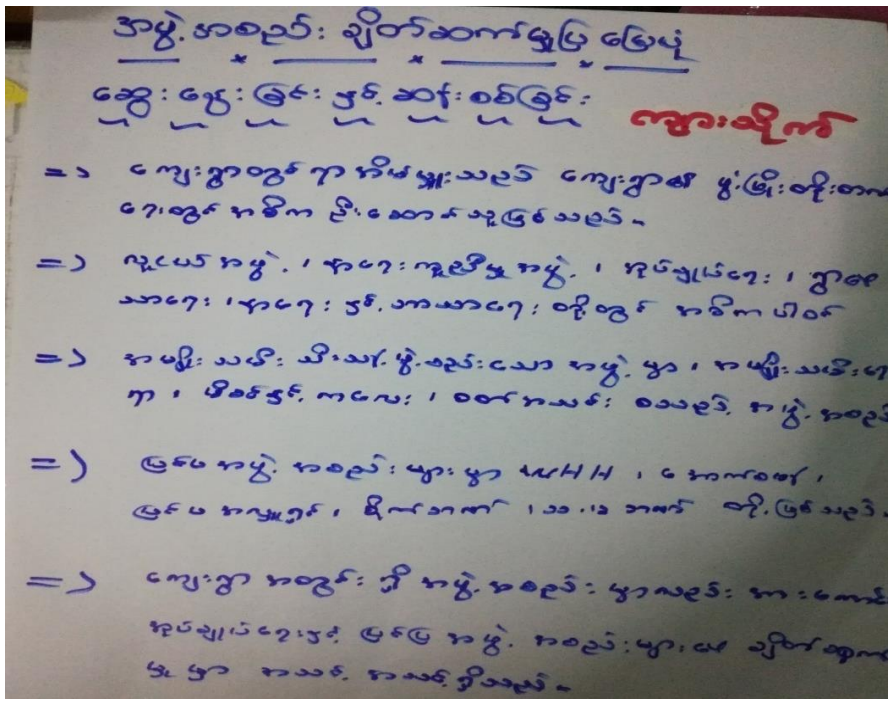 အဖွဲ့အစည်း ချိတ်ဆက်မှုပြ မြေပုံ
ဆွေးနွေးခြင်း နှင့် ဆန်းစစ်ခြင်း
ကျားသိုက်
=> ကျေးရွာတွင် ရာအိမ်မှူးသည် ကျေးရွာ၏ ဖွံ့ဖြိုးတိုးတက်
ရေးတွင် အဓိက ဦးဆောင်သူဖြစ်သည်။
=> လူငယ်အဖွဲ့ ၊ နာရေးကူညီမှုအဖွဲ့ ၊ အုပ်ချုပ်ရေး ၊ ရွာ၏
သာရေး ၊ နာရေး နှင့် ဘာသာရေး တို့တွင် အဓိကပါဝင်
=> အမျိုးသမီး သီးသန့်ဖွဲ့စည်းသော အဖွဲ့မှာ ၊ အမျိုးသမီးရေး
ရာ ၊ မိခင်နှင့် ကလေး ၊ ဝတ်အသင်း စသည့် အဖွဲ့အစည်း
=> ပြင်ပအဖွဲ့ အစည်းများမှာ WHH ၊
ပြင်ပအလှူရှင် ၊ စိုက်ဘဏ် ၊ တို့ဖြစ်သည်။
=> ကျေးရွာ အတွင်းရှိ အဖွဲ့အစည်းမှာလည်း အားကောင်း
အုပ်ချုပ်ရေးနှင့် ပြင်ပ အဖွဲ့အစည်းများ၏ ချိတ်ဆက်
မှုမှာ အသင့်အသင့်ရှိသည်။